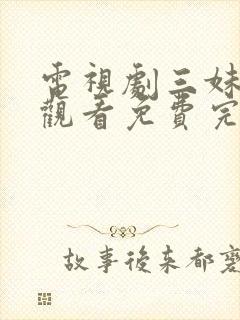 電視劇三妹
觀看免費完
故事後來都